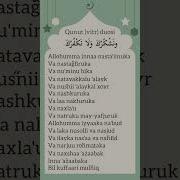 Qunut (vitr) duosi
وَنَشْكُرُكَ وَلَا نَكْفُرُكَ
Allohumma innaa nasta'iinuka
Va nastag'firuka
Va nu'minu bika
Va natavakkalu 'alayk
Va nusnii 'alaykal xoyr
Va nashkuruka
Va laa nakfuruka
Va naxla'u
Va natruku may-yafjuruk
Allohumma iyyaaka na'bud
Va laka nusolli va nasjud
Va ilayka nas'aa va nahfid
Va narjuu rohmataka
Va naxshaa 'azaabak
Inna 'azaabaka
Bil kuffaari mulhiq